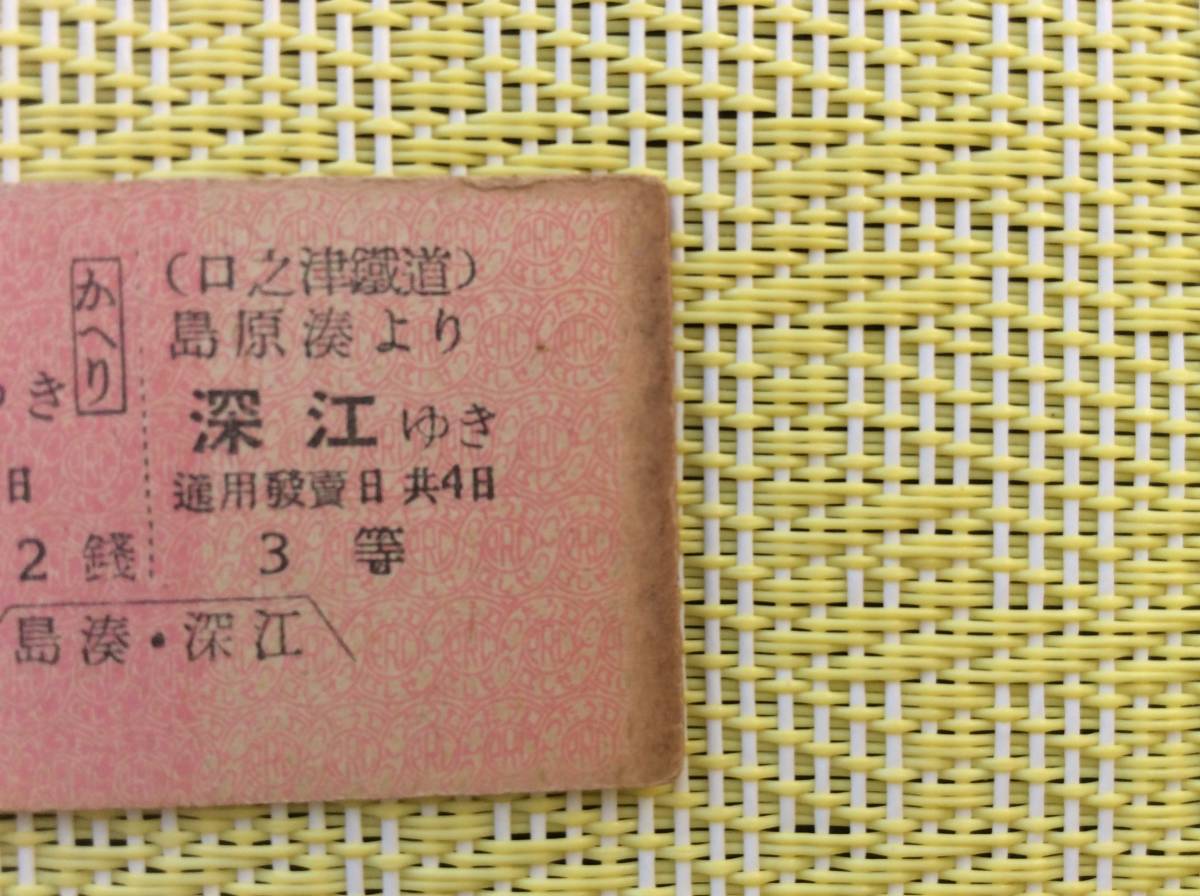 (口之津鐵道)
島原湊より
深江ゆき
通用發賣日共4日
3等
かへり
ゆき
日
2錢
島湊・深江